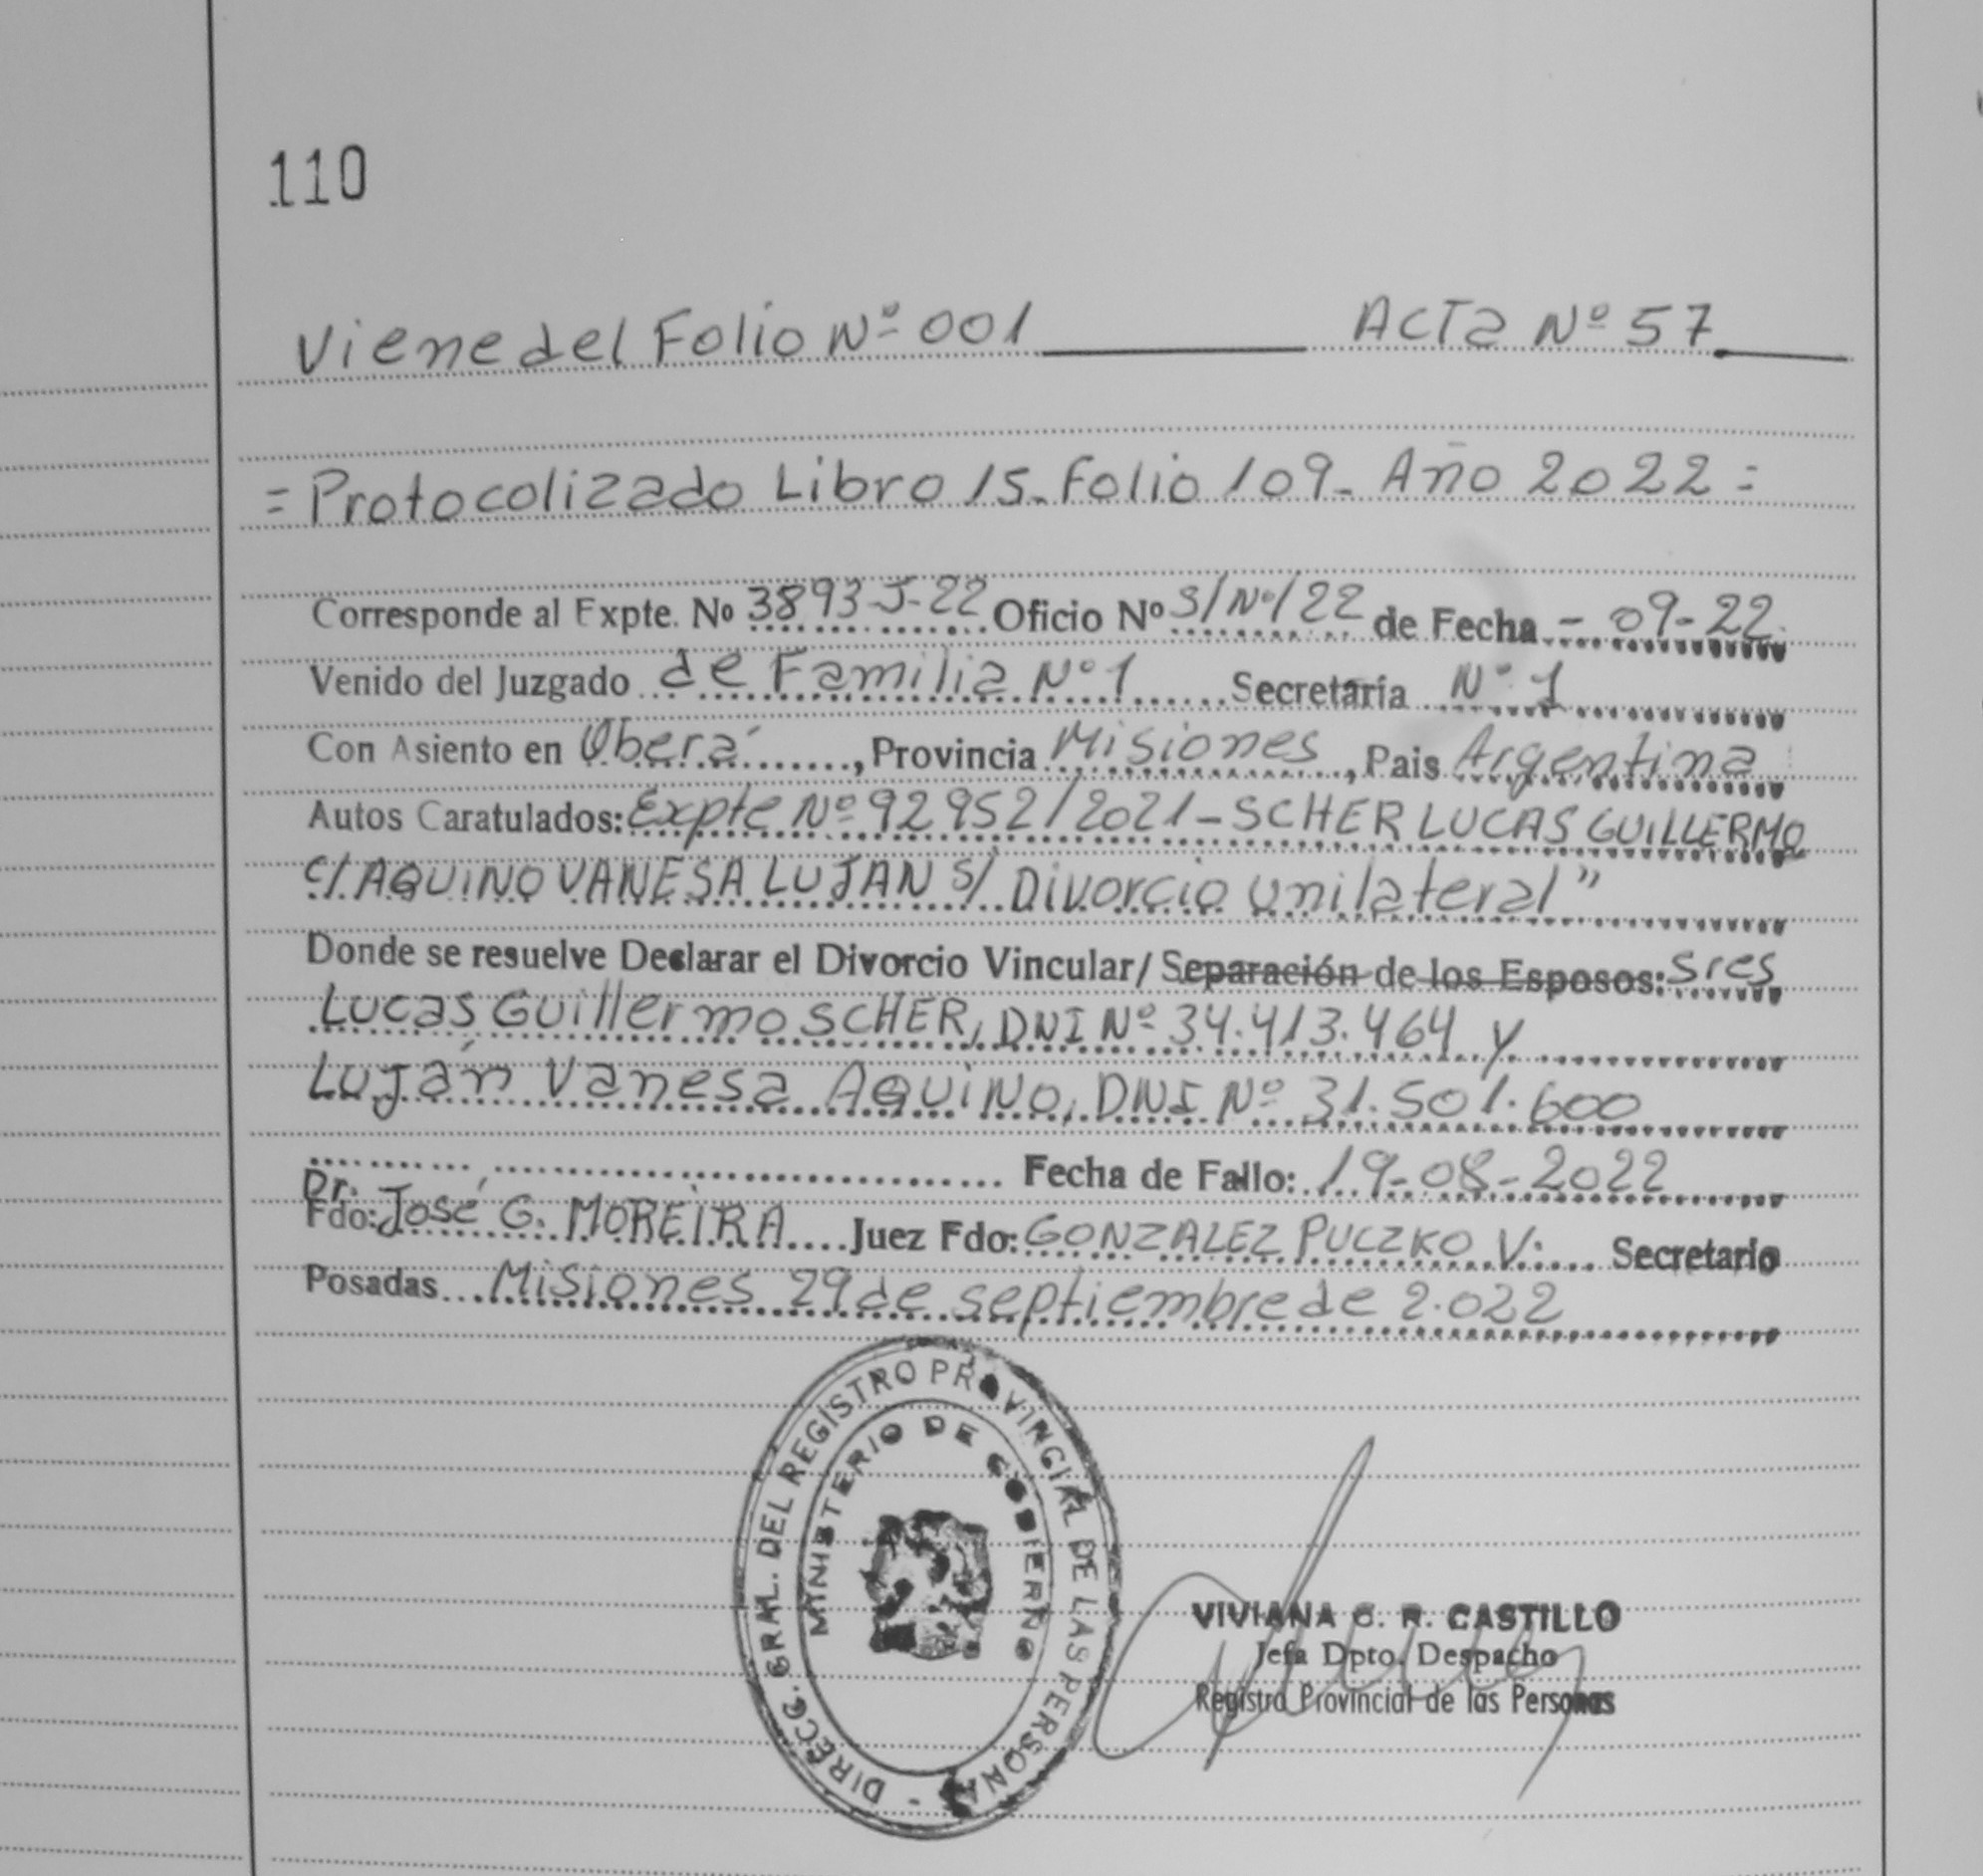 110
Viene del Folio Nº 001 ACTA Nº 57
= Protocolizado Libro 15. Folio 109. Año 2022 =
Corresponde al Expte. Nº 3893-J-22 Oficio Nº S/Nº/22 de Fecha - 09-22
Venido del Juzgado de Familia Nº 1 Secretaría Nº 1
Con Asiento en Oberá, Provincia Misiones, Pais Argentina
Autos Caratulados: Expte Nº 92952/2021 - SCHER LUCAS GUILLERMO
c/ AQUINO VANESA LUJAN s/ Divorcio unilateral"
Donde se resuelve Declarar el Divorcio Vincular/ Separación de los Esposos: Sres
Lucas Guillermo SCHER, DNI Nº 34.413.464 y
Luján Vanesa AQUINO, DNI Nº 31.501.600
Fecha de Fallo: 19-08-2022
Dr.
Fdo: José G. MOREIRA Juez Fdo: GONZALEZ PUCZKO V. Secretario
Posadas Misiones 29 de septiembre de 2.022
DIRECC. GRAL. DEL REGISTRO PROVINCIAL DE LAS PERSONAS -
MINISTERIO DE GOBIERNO
VIVIANA C. R. CASTILLO
Jefa Dpto. Despacho
Registro Provincial de las Personas